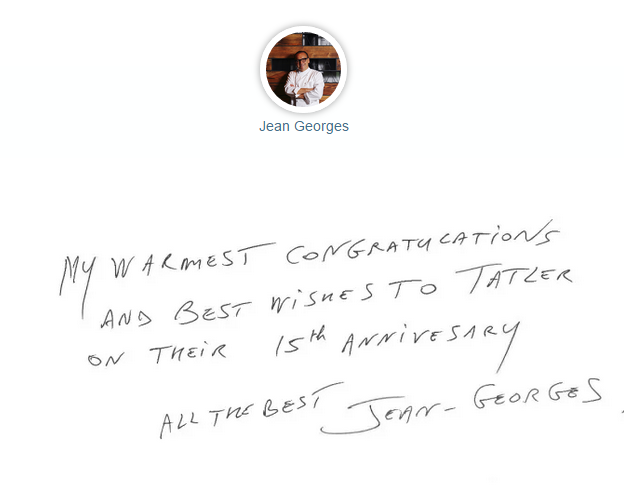 Jean Georges
MY WARMEST CONGRATULATIONS
AND BEST WISHES TO TATLER
ON THEIR 15th ANNIVESARY
ALL THE BEST JEAN-GEORGES